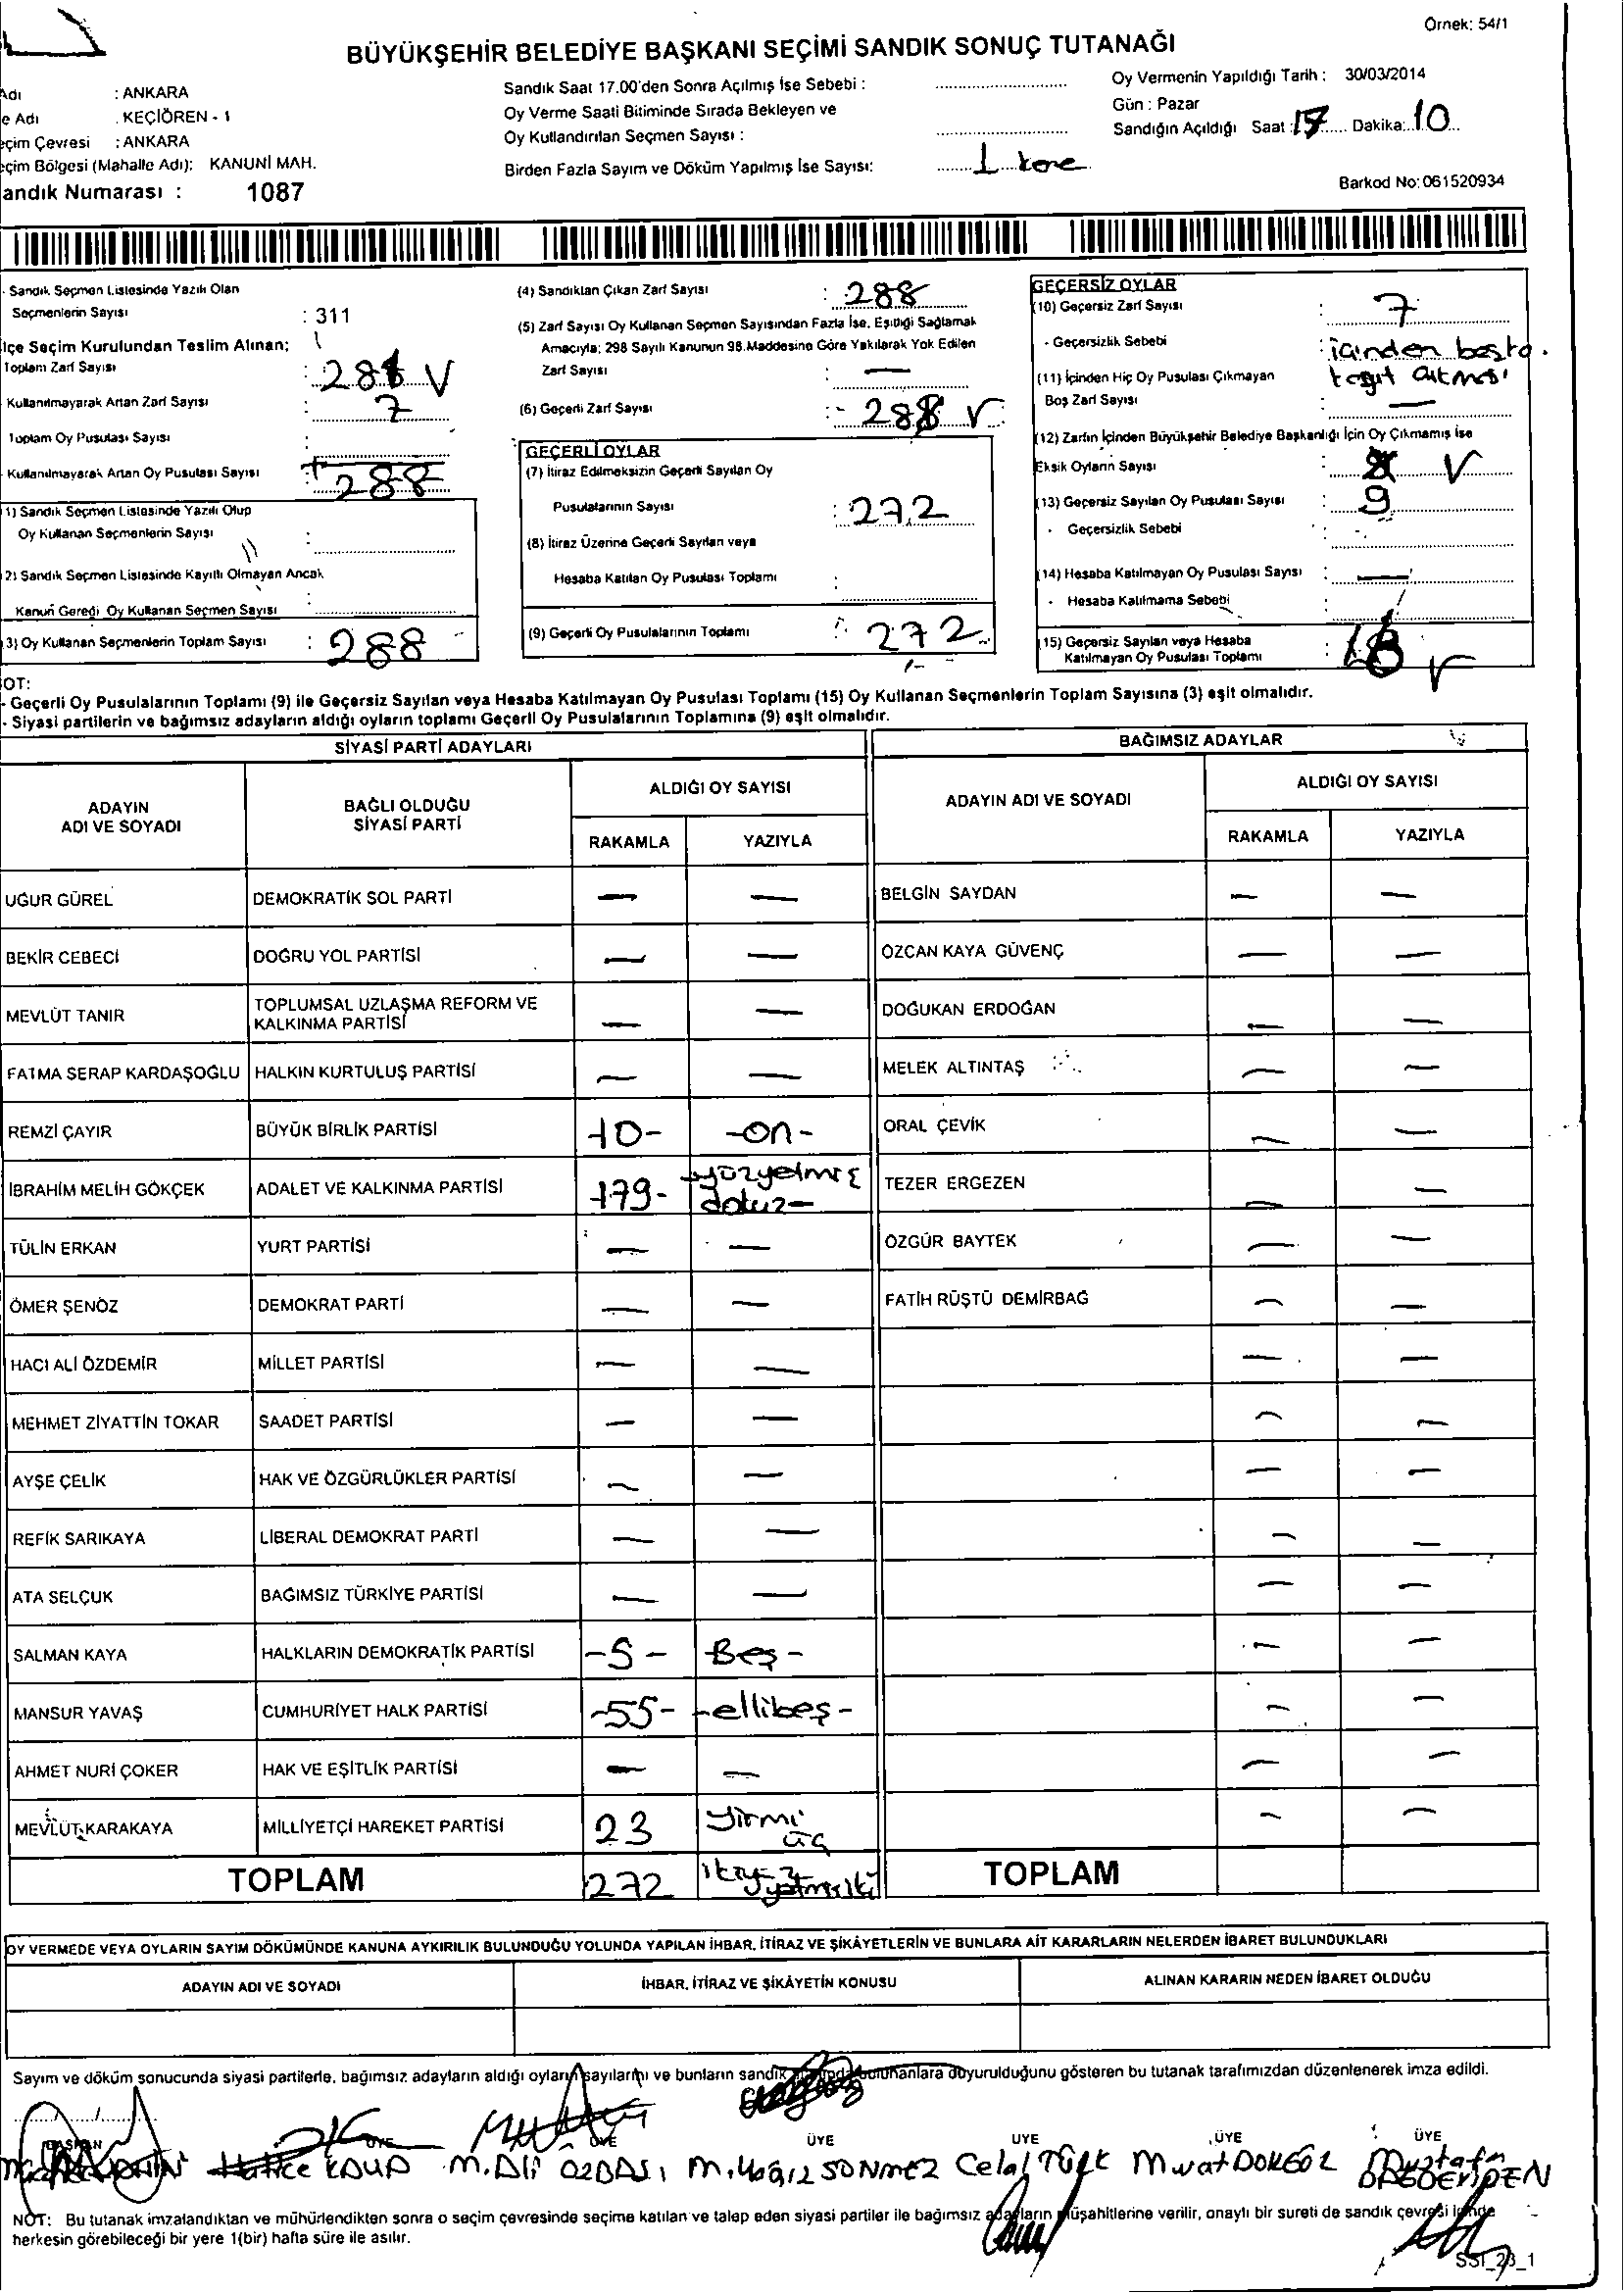 Örnek: 54/1
BÜYÜKŞEHİR BELEDİYE BAŞKANI SEÇİMİ SANDIK SONUÇ TUTANAĞI
Adı : ANKARA
e Adı : KEÇİÖREN - 1
eçim Çevresi : ANKARA
eçim Bölgesi (Mahalle Adı): KANUNİ MAH.
andık Numarası : 1087
Sandık Saat 17.00'den Sonra Açılmış İse Sebebi :
Oy Verme Saati Bitiminde Sırada Bekleyen ve
Oy Kullandırılan Seçmen Sayısı :
Birden Fazla Sayım ve Döküm Yapılmış İse Sayısı: 1 kere
Oy Vermenin Yapıldığı Tarih : 30/03/2014
Gün : Pazar
Sandığın Açıldığı Saat : 17 Dakika: 10
Barkod No: 061520934
- Sandık Seçmen Listesinde Yazılı Olan
Seçmenlerin Sayısı : 311
lçe Seçim Kurulundan Teslim Alınan;
Toplam Zarf Sayısı :
Kullanılmayarak Artan Zarf Sayısı : 7
Toplam Oy Pusulası Sayısı :
Kullanılmayarak Artan Oy Pusulası Sayısı 288
1) Sandık Seçmen Listesinde Yazılı Olup
Oy Kullanan Seçmenlerin Sayısı :
2) Sandık Seçmen Listesinde Kayıtlı Olmayan Ancak
Kanun Gereği Oy Kullanan Seçmen Sayısı :
3) Oy Kullanan Seçmenlerin Toplam Sayısı : 288
(4) Sandıktan Çıkan Zarf Sayısı : 288
(5) Zarf Sayısı Oy Kullanan Seçmen Sayısından Fazla İse, Eşitliği Sağlamak
Amacıyla; 298 Sayılı Kanunun 98.Maddesine Göre Yakılarak Yok Edilen
Zarf Sayısı : —
(6) Geçerli Zarf Sayısı :
GEÇERLİ OYLAR
(7) İtiraz Edilmeksizin Geçerli Sayılan Oy
Pusulalarının Sayısı : 272
(8) İtiraz Üzerine Geçerli Sayılan veya
Hesaba Katılan Oy Pusulası Toplamı :
(9) Geçerli Oy Pusulalarının Toplamı : 272
GEÇERSİZ OYLAR
(10) Geçersiz Zarf Sayısı : 7
- Geçersizlik Sebebi : içinden başka
kağıt çıkması
(11) İçinden Hiç Oy Pusulası Çıkmayan
Boş Zarf Sayısı : —
(12) Zarfın İçinden Büyükşehir Belediye Başkanlığı İçin Oy Çıkmamış İse
Eksik Oyların Sayısı :
(13) Geçersiz Sayılan Oy Pusulası Sayısı : 9
- Geçersizlik Sebebi :
(14) Hesaba Katılmayan Oy Pusulası Sayısı : —
- Hesaba Katılmama Sebebi :
(15) Geçersiz Sayılan veya Hesaba
Katılmayan Oy Pusulası Toplamı :
OT:
- Geçerli Oy Pusulalarının Toplamı (9) ile Geçersiz Sayılan veya Hesaba Katılmayan Oy Pusulası Toplamı (15) Oy Kullanan Seçmenlerin Toplam Sayısına (3) eşit olmalıdır.
- Siyasi partilerin ve bağımsız adayların aldığı oyların toplamı Geçerli Oy Pusulalarının Toplamına (9) eşit olmalıdır.
SİYASİ PARTİ ADAYLARI
ADAYIN ADI VE SOYADI BAĞLI OLDUĞU SİYASİ PARTİ ALDIĞI OY SAYISI
RAKAMLA YAZIYLA
UĞUR GÜREL DEMOKRATİK SOL PARTİ — —
BEKİR CEBECİ DOĞRU YOL PARTİSİ — —
MEVLÜT TANIR TOPLUMSAL UZLAŞMA REFORM VE KALKINMA PARTİSİ — —
FATMA SERAP KARDAŞOĞLU HALKIN KURTULUŞ PARTİSİ — —
REMZİ ÇAYIR BÜYÜK BİRLİK PARTİSİ -10- -on-
İBRAHİM MELİH GÖKÇEK ADALET VE KALKINMA PARTİSİ -179- -yüzyetmiş dokuz-
TÜLİN ERKAN YURT PARTİSİ — —
ÖMER ŞENÖZ DEMOKRAT PARTİ — —
HACI ALİ ÖZDEMİR MİLLET PARTİSİ — —
MEHMET ZİYATTİN TOKAR SAADET PARTİSİ — —
AYŞE ÇELİK HAK VE ÖZGÜRLÜKLER PARTİSİ — —
REFİK SARIKAYA LİBERAL DEMOKRAT PARTİ — —
ATA SELÇUK BAĞIMSIZ TÜRKİYE PARTİSİ — —
SALMAN KAYA HALKLARIN DEMOKRATİK PARTİSİ -5- -Beş-
MANSUR YAVAŞ CUMHURİYET HALK PARTİSİ -55- -ellibeş-
AHMET NURİ ÇOKER HAK VE EŞİTLİK PARTİSİ — —
MEVLÜT KARAKAYA MİLLİYETÇİ HAREKET PARTİSİ 23 Yirmi üç
TOPLAM 272
BAĞIMSIZ ADAYLAR
ADAYIN ADI VE SOYADI ALDIĞI OY SAYISI
RAKAMLA YAZIYLA
BELGİN SAYDAN — —
ÖZCAN KAYA GÜVENÇ — —
DOĞUKAN ERDOĞAN — —
MELEK ALTINTAŞ — —
ORAL ÇEVİK — —
TEZER ERGEZEN — —
ÖZGÜR BAYTEK — —
FATİH RÜŞTÜ DEMİRBAĞ — —
TOPLAM
OY VERMEDE VEYA OYLARIN SAYIM DÖKÜMÜNDE KANUNA AYKIRILIK BULUNDUĞU YOLUNDA YAPILAN İHBAR, İTİRAZ VE ŞİKÂYETLERİN VE BUNLARA AİT KARARLARIN NELERDEN İBARET BULUNDUKLARI
ADAYIN ADI VE SOYADI İHBAR, İTİRAZ VE ŞİKÂYETİN KONUSU ALINAN KARARIN NEDEN İBARET OLDUĞU
Sayım ve döküm sonucunda siyasi partilerle, bağımsız adayların aldığı oyların sayılarını ve bunların sandık bulunanlara duyurulduğunu gösteren bu tutanak tarafımızdan düzenlenerek imza edildi.
BAŞKAN ÜYE ÜYE ÜYE ÜYE ÜYE ÜYE
Hatice KAYA M. Ali ÖZBAŞ M. Yağız SÖNMEZ Celal Türk Murat DOKGÖZ Mustafa
NOT: Bu tutanak imzalandıktan ve mühürlendikten sonra o seçim çevresinde seçime katılan ve talep eden siyasi partiler ile bağımsız adayların müşahitlerine verilir, onaylı bir sureti de sandık çevresi içinde
herkesin görebileceği bir yere 1(bir) hafta süre ile asılır.
SSI_23_1